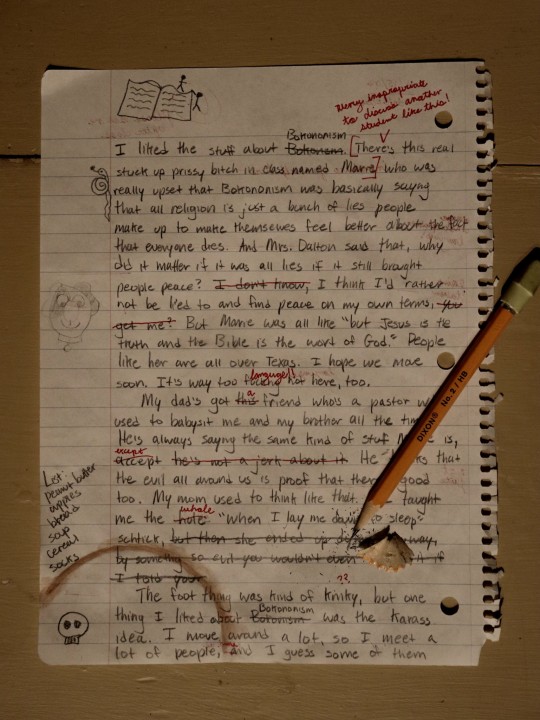 Very inappropriate
to discuss another
student like this!
Bokononism
I liked the stuff about Bokonism. [There's this real
stuck up prissy bitch in class named Marie] who was
really upset that Bokononism was basically saying
that all religion is just a bunch of lies people
make up to make themselves feel better about the fact
that everyone dies. And Mrs. Dalton said that, why
did it matter if it was all lies if it still brought
people peace? I don't know, I think I'd rather
not be lied to and find peace on my own terms, you
get me? But Marie was all like "but Jesus is the
truth and the Bible is the word of God." People
like her are all over Texas. I hope we move
soon. It's way too fucking hot here, too.
language!!
My dad's got this a friend who's a pastor
used to babysit me and my brother all the
He's always saying the same kind of stuff is,
except
accept he's not a jerk about it. He that
the evil all around us is proof that there good
too. My mom used to think like that. taught
whole
me the hole "When I lay me down to sleep"
schtick, but then she ended up way,
by something so evil you wouldn't even it if
I told you.
??
The foot thing was kind of kinky, but one
Bokononism
thing I liked about Bokonism was the Karass
idea. I move around a lot, so I meet a
lot of people, and I guess some of them
Let:
peanut butter
apples
bread
soup
cereal
socks
DIXON® No. 2 / HB